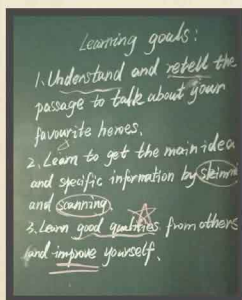 Learning goals:
1. Understand and retell the
passage to talk about your
favourite heroes.
2. Learn to get the main idea
and specific information by skimming
and scanning.
3. Learn good qualities from others
and improve yourself.